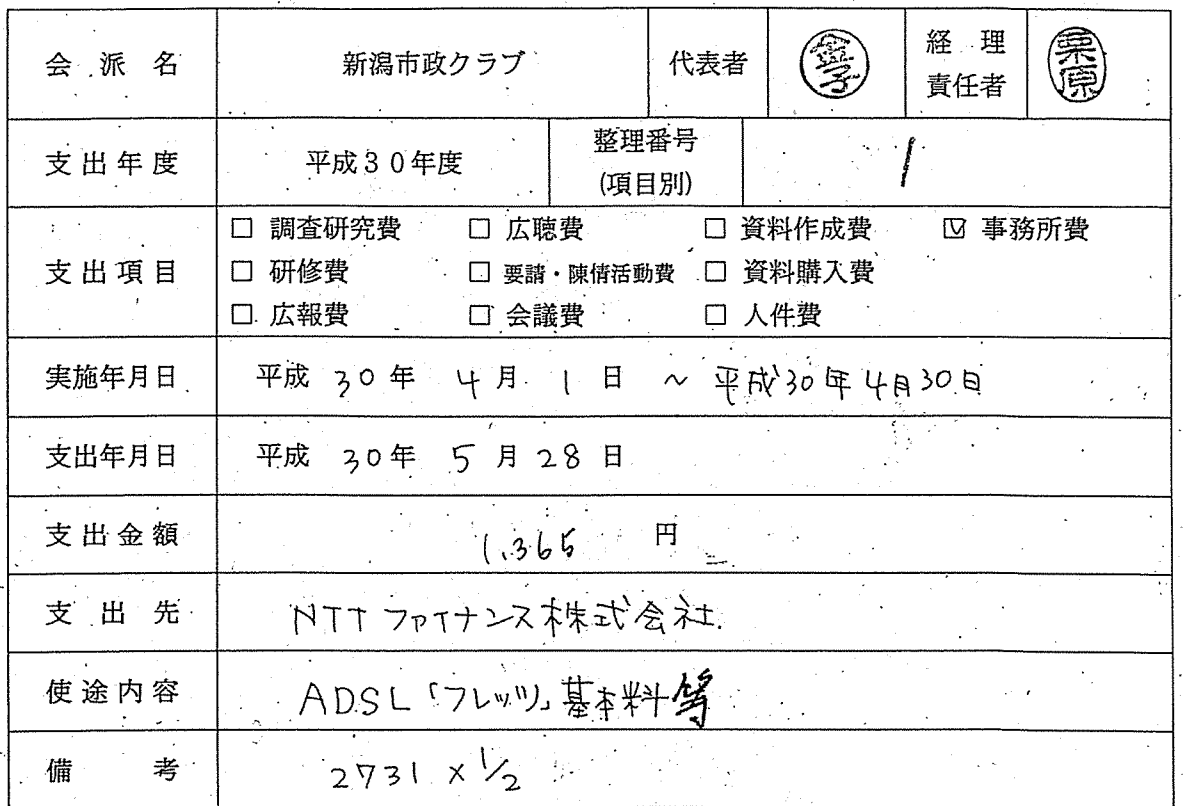 会派名 新潟市政クラブ 代表者 金子 経理責任者 栗原
支出年度 平成30年度 整理番号(項目別) 1
支出項目
□ 調査研究費 □ 広聴費 □ 資料作成費 ☑ 事務所費
□ 研修費 □ 要請・陳情活動費 □ 資料購入費
□ 広報費 □ 会議費 □ 人件費
実施年月日 平成 30年 4月 1日 ~ 平成30年4月30日
支出年月日 平成 30年 5月28日
支出金額 1,365 円
支出先 NTTファイナンス株式会社.
使途内容 ADSL「フレッツ」基本料等
備考 2731 × 1/2